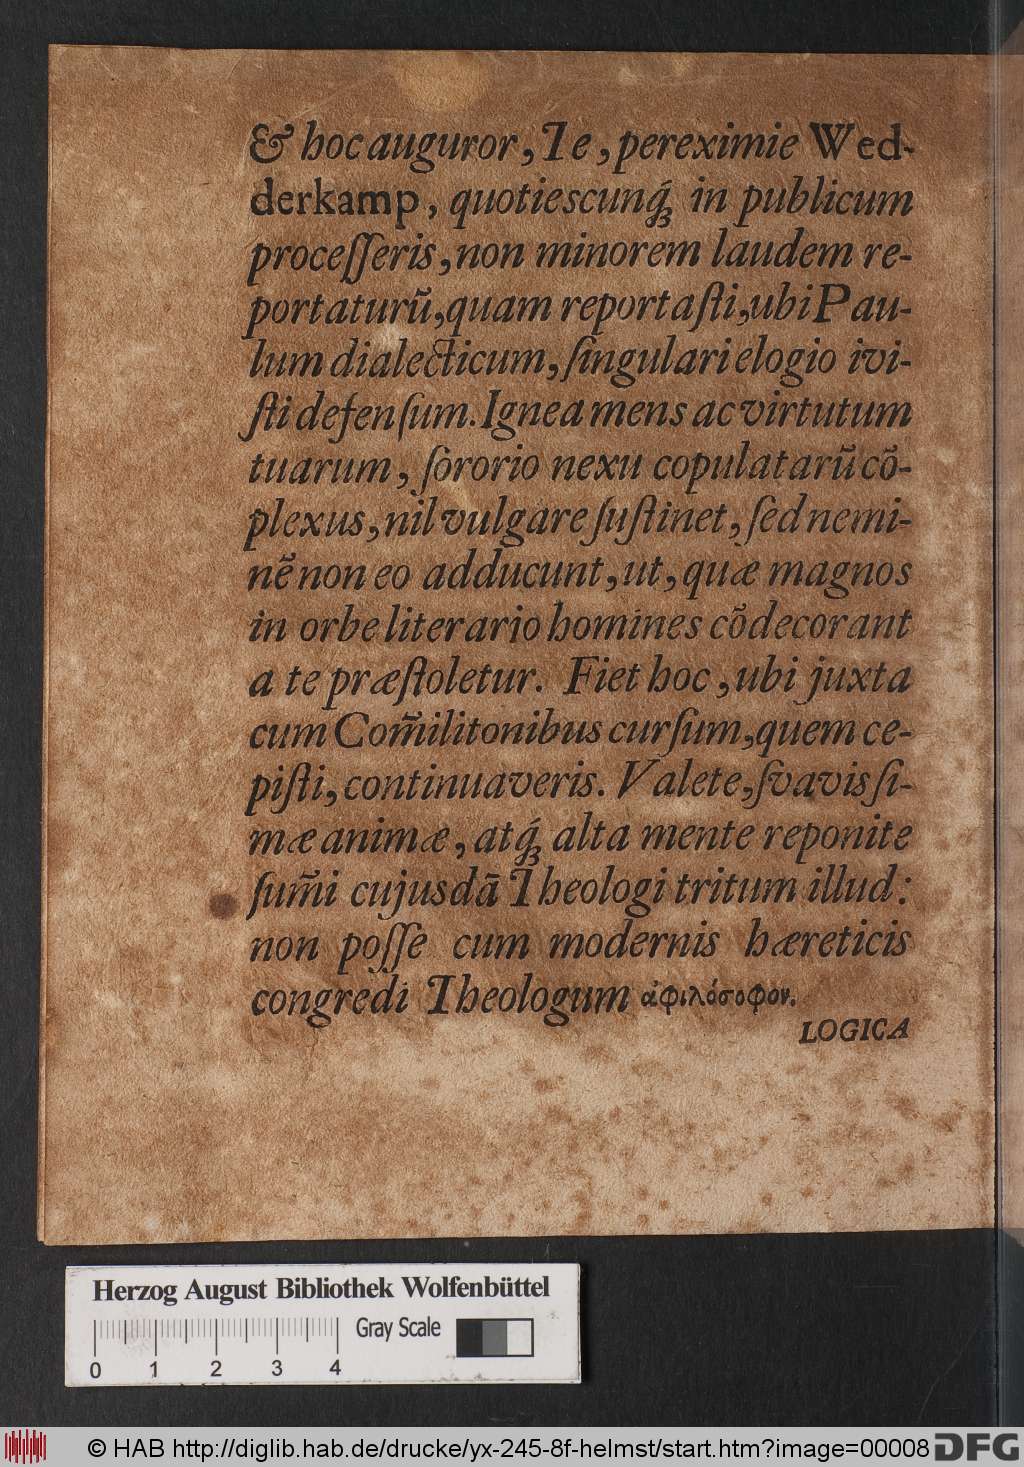 & hoc auguror, Te, pereximie Wed-
derkamp, quotiescunq́ꝫ in publicum
proceſſeris, non minorem laudem re-
portaturũ, quam reportaſti, ubi Pau-
lum dialecticum, ſingulari elogio ivi-
ſti defenſum. Ignea mens ac virtutum
tuarum, ſororio nexu copulatarũ cõ-
plexus, nil vulgare ſuſtinet, ſed nemi-
nẽ non eo adducunt, ut, quæ magnos
in orbe literario homines cõdecorant
a te præſtoletur. Fiet hoc, ubi juxta
cum Com̃ilitonibus curſum, quem ce-
piſti, continuaveris. Valete, ſvavisſi-
mæ animæ, atq́ꝫ alta mente reponite
ſum̃i cujusdã Theologi tritum illud:
non poſſe cum modernis hæreticis
congredi Theologum ἀφιλόσοφον.
LOGICA
Herzog August Bibliothek Wolfenbüttel
Gray Scale
0 1 2 3 4
© HAB http://diglib.hab.de/drucke/yx-245-8f-helmst/start.htm?image=00008
DFG